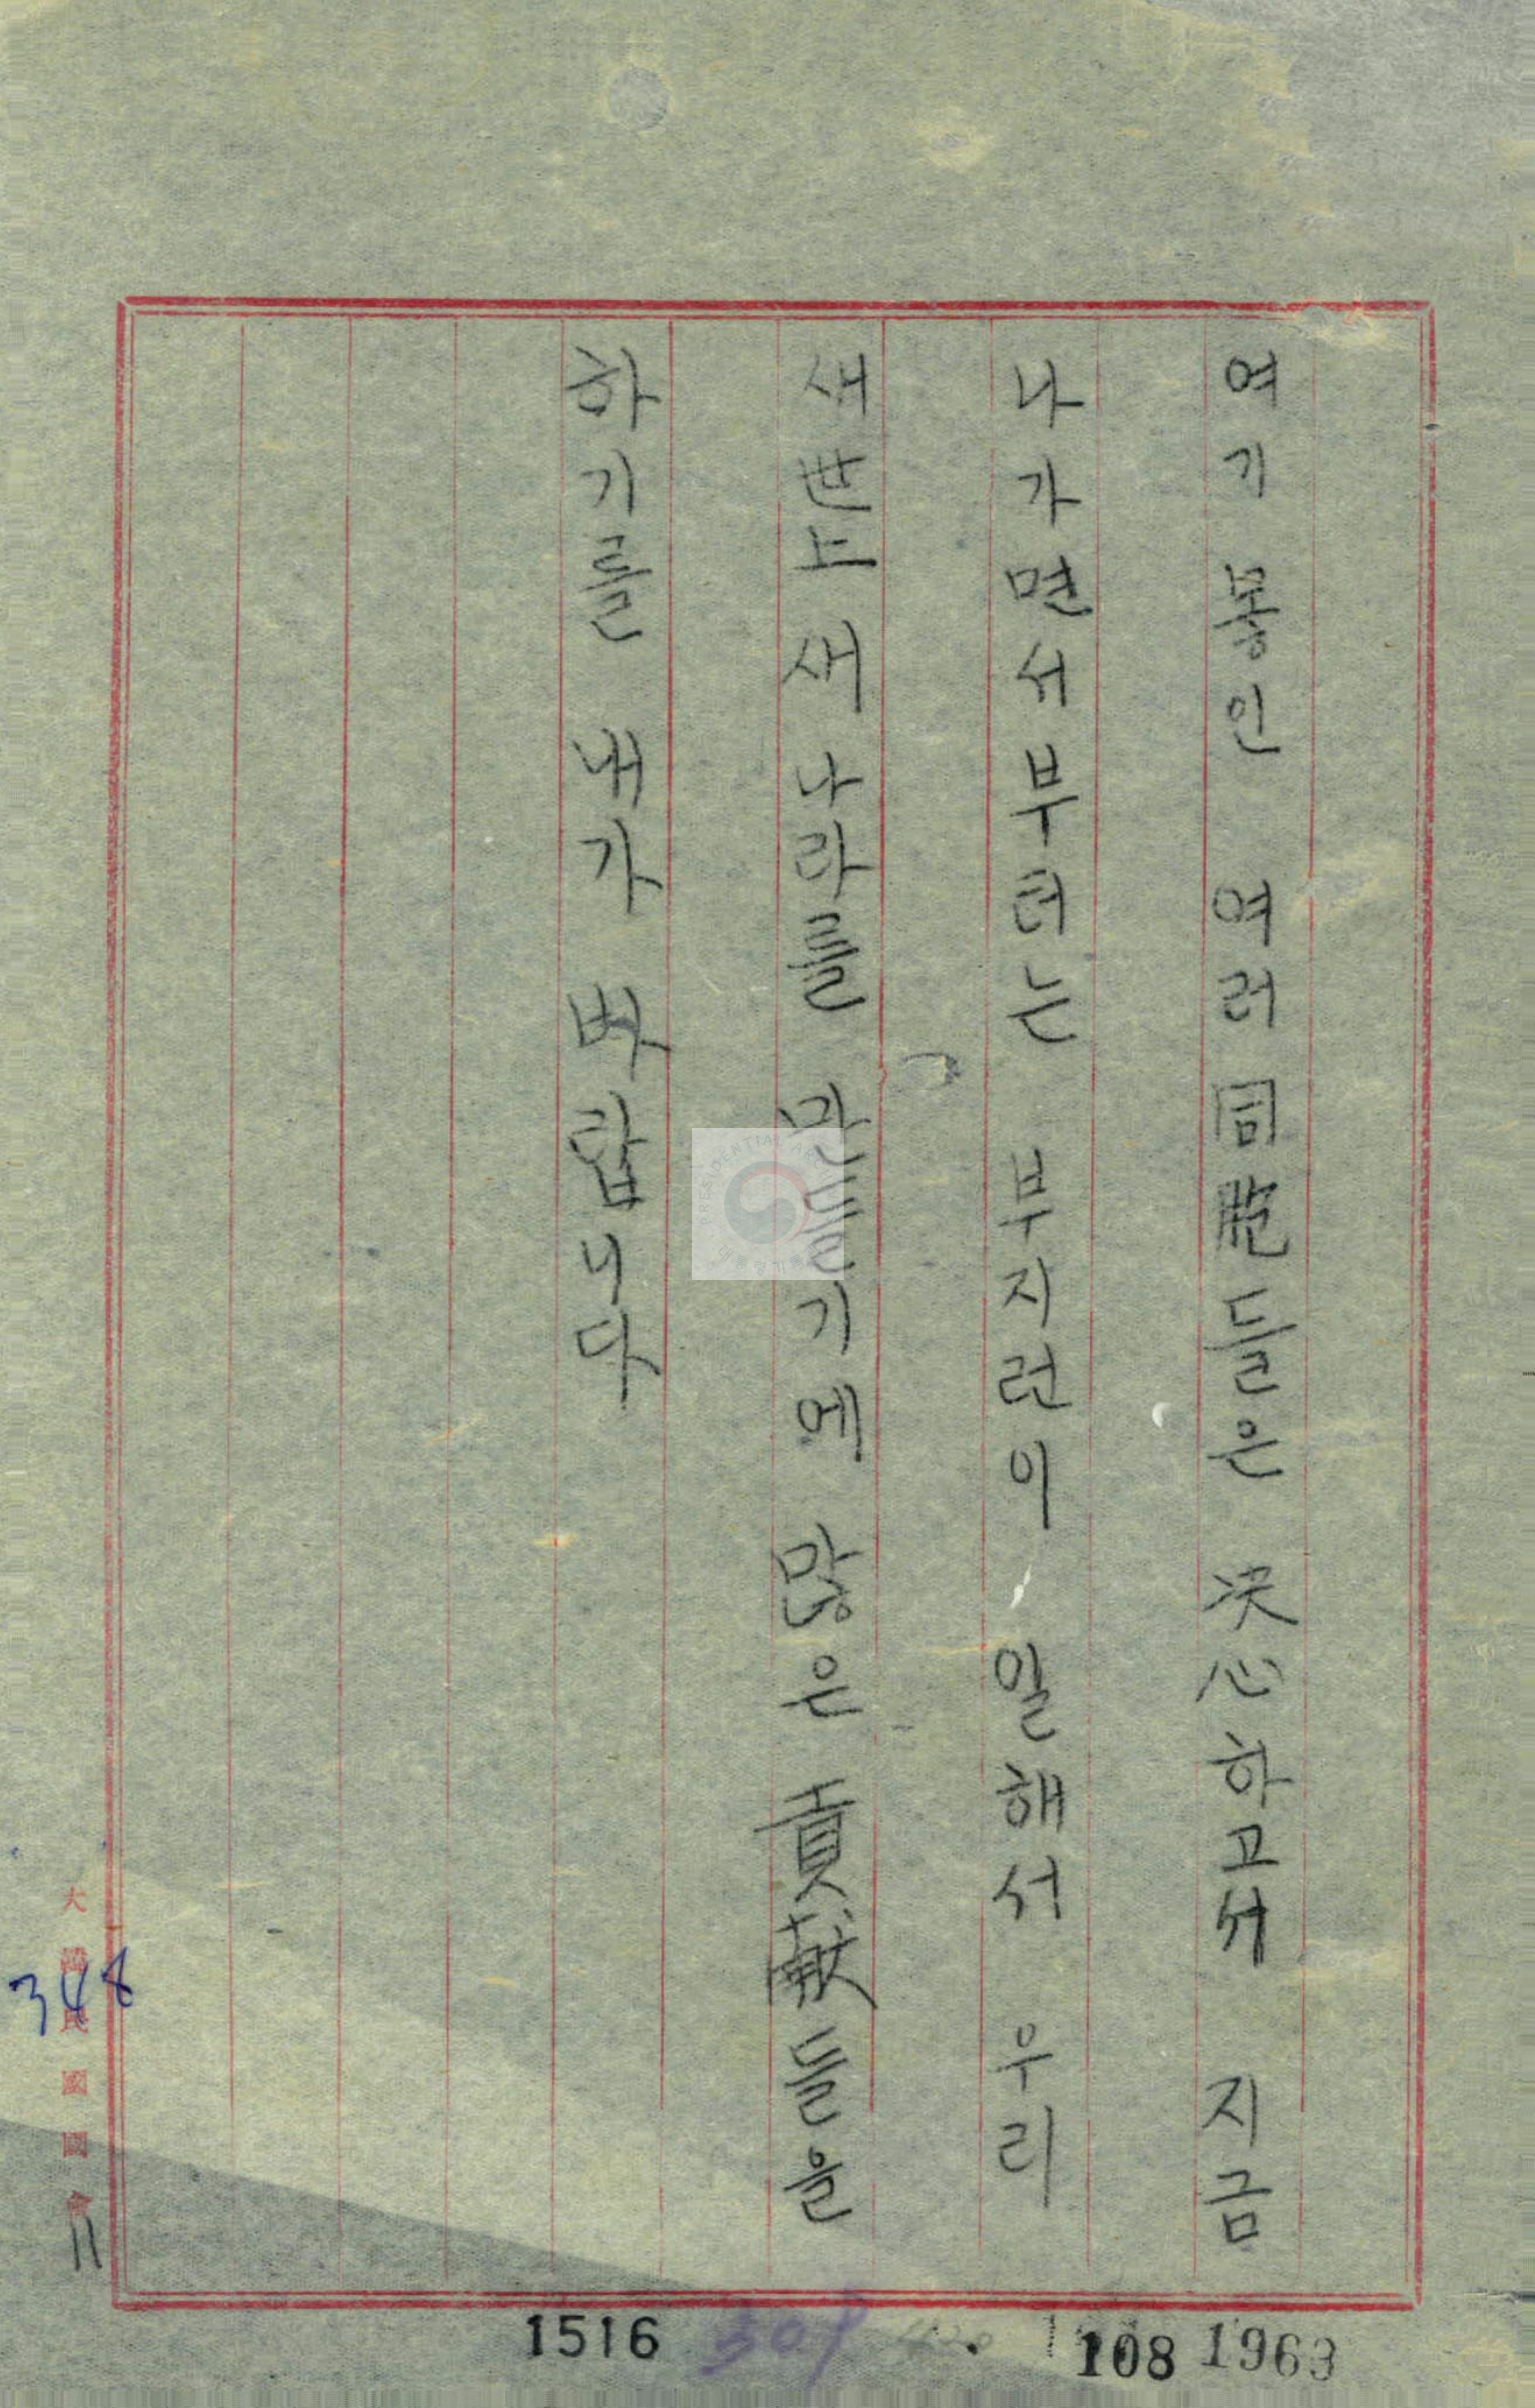 여기 몽인 여러 同胞들은 決心하고서 지금
나가면서부터는 부지런이 일해서 우리
새 世上 새 나라를 만들기에 많은 貢献들을
하기를 내가 바랍니다
大韓民國國會
348
11
1516
108
1963